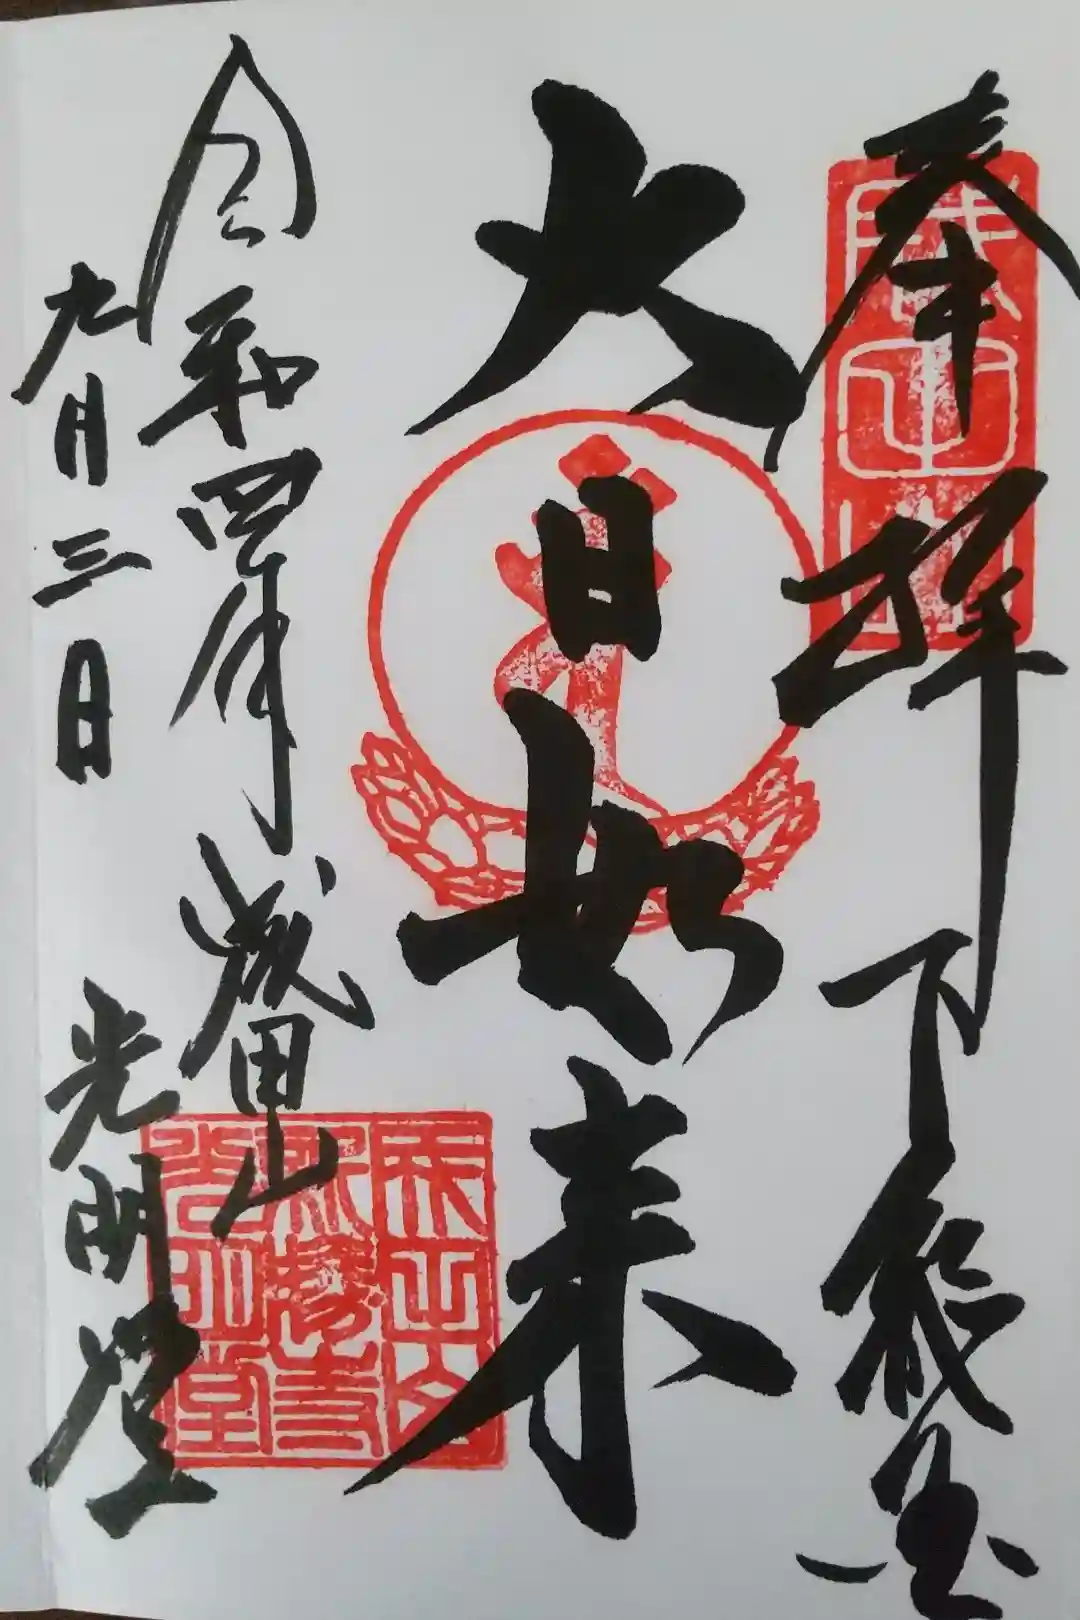 奉拝 下総国
大日如来
令和四年 成田山
九月三日 光明堂
成田山
新勝寺
光明堂